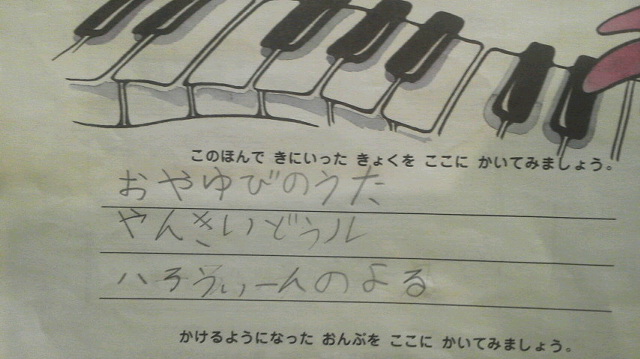 このほんで きにいった きょくを ここに かいてみましょう。
おやゆびのうた
やんきいどうル
ハろうぃーんのよる
かけるようになった おんぷを ここに かいてみましょう。